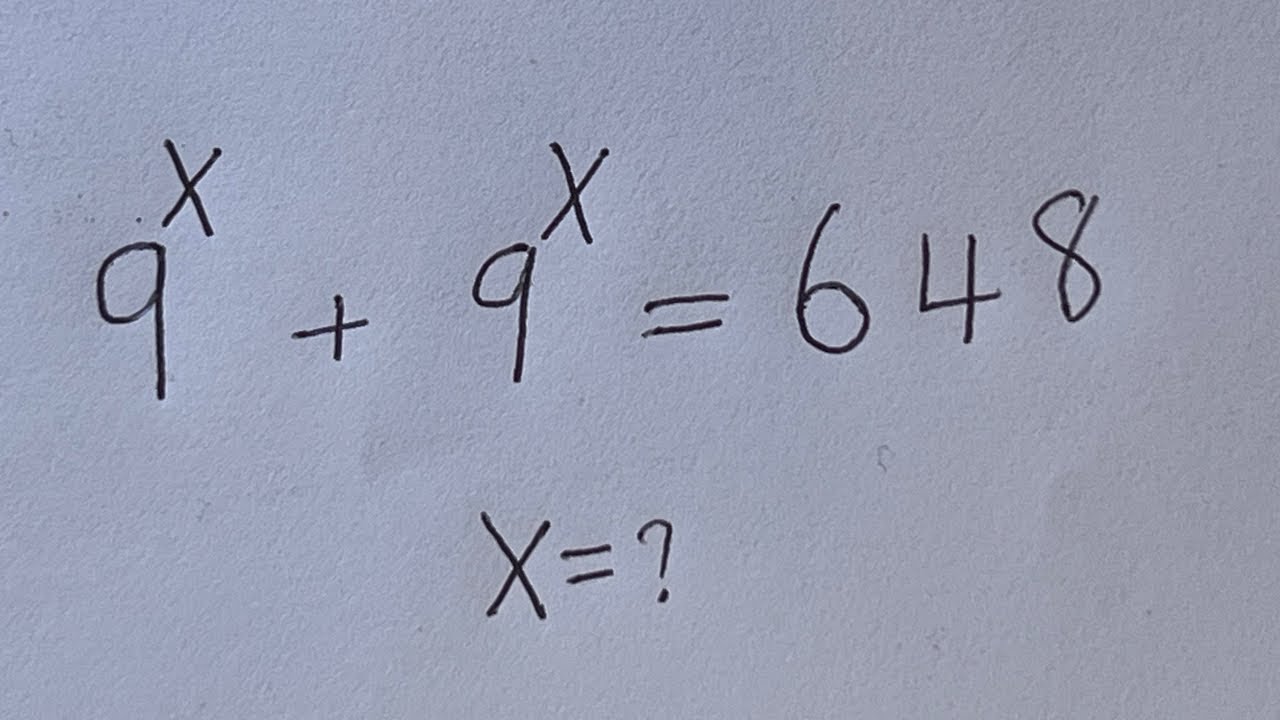 9^x + 9^x = 648
X = ?